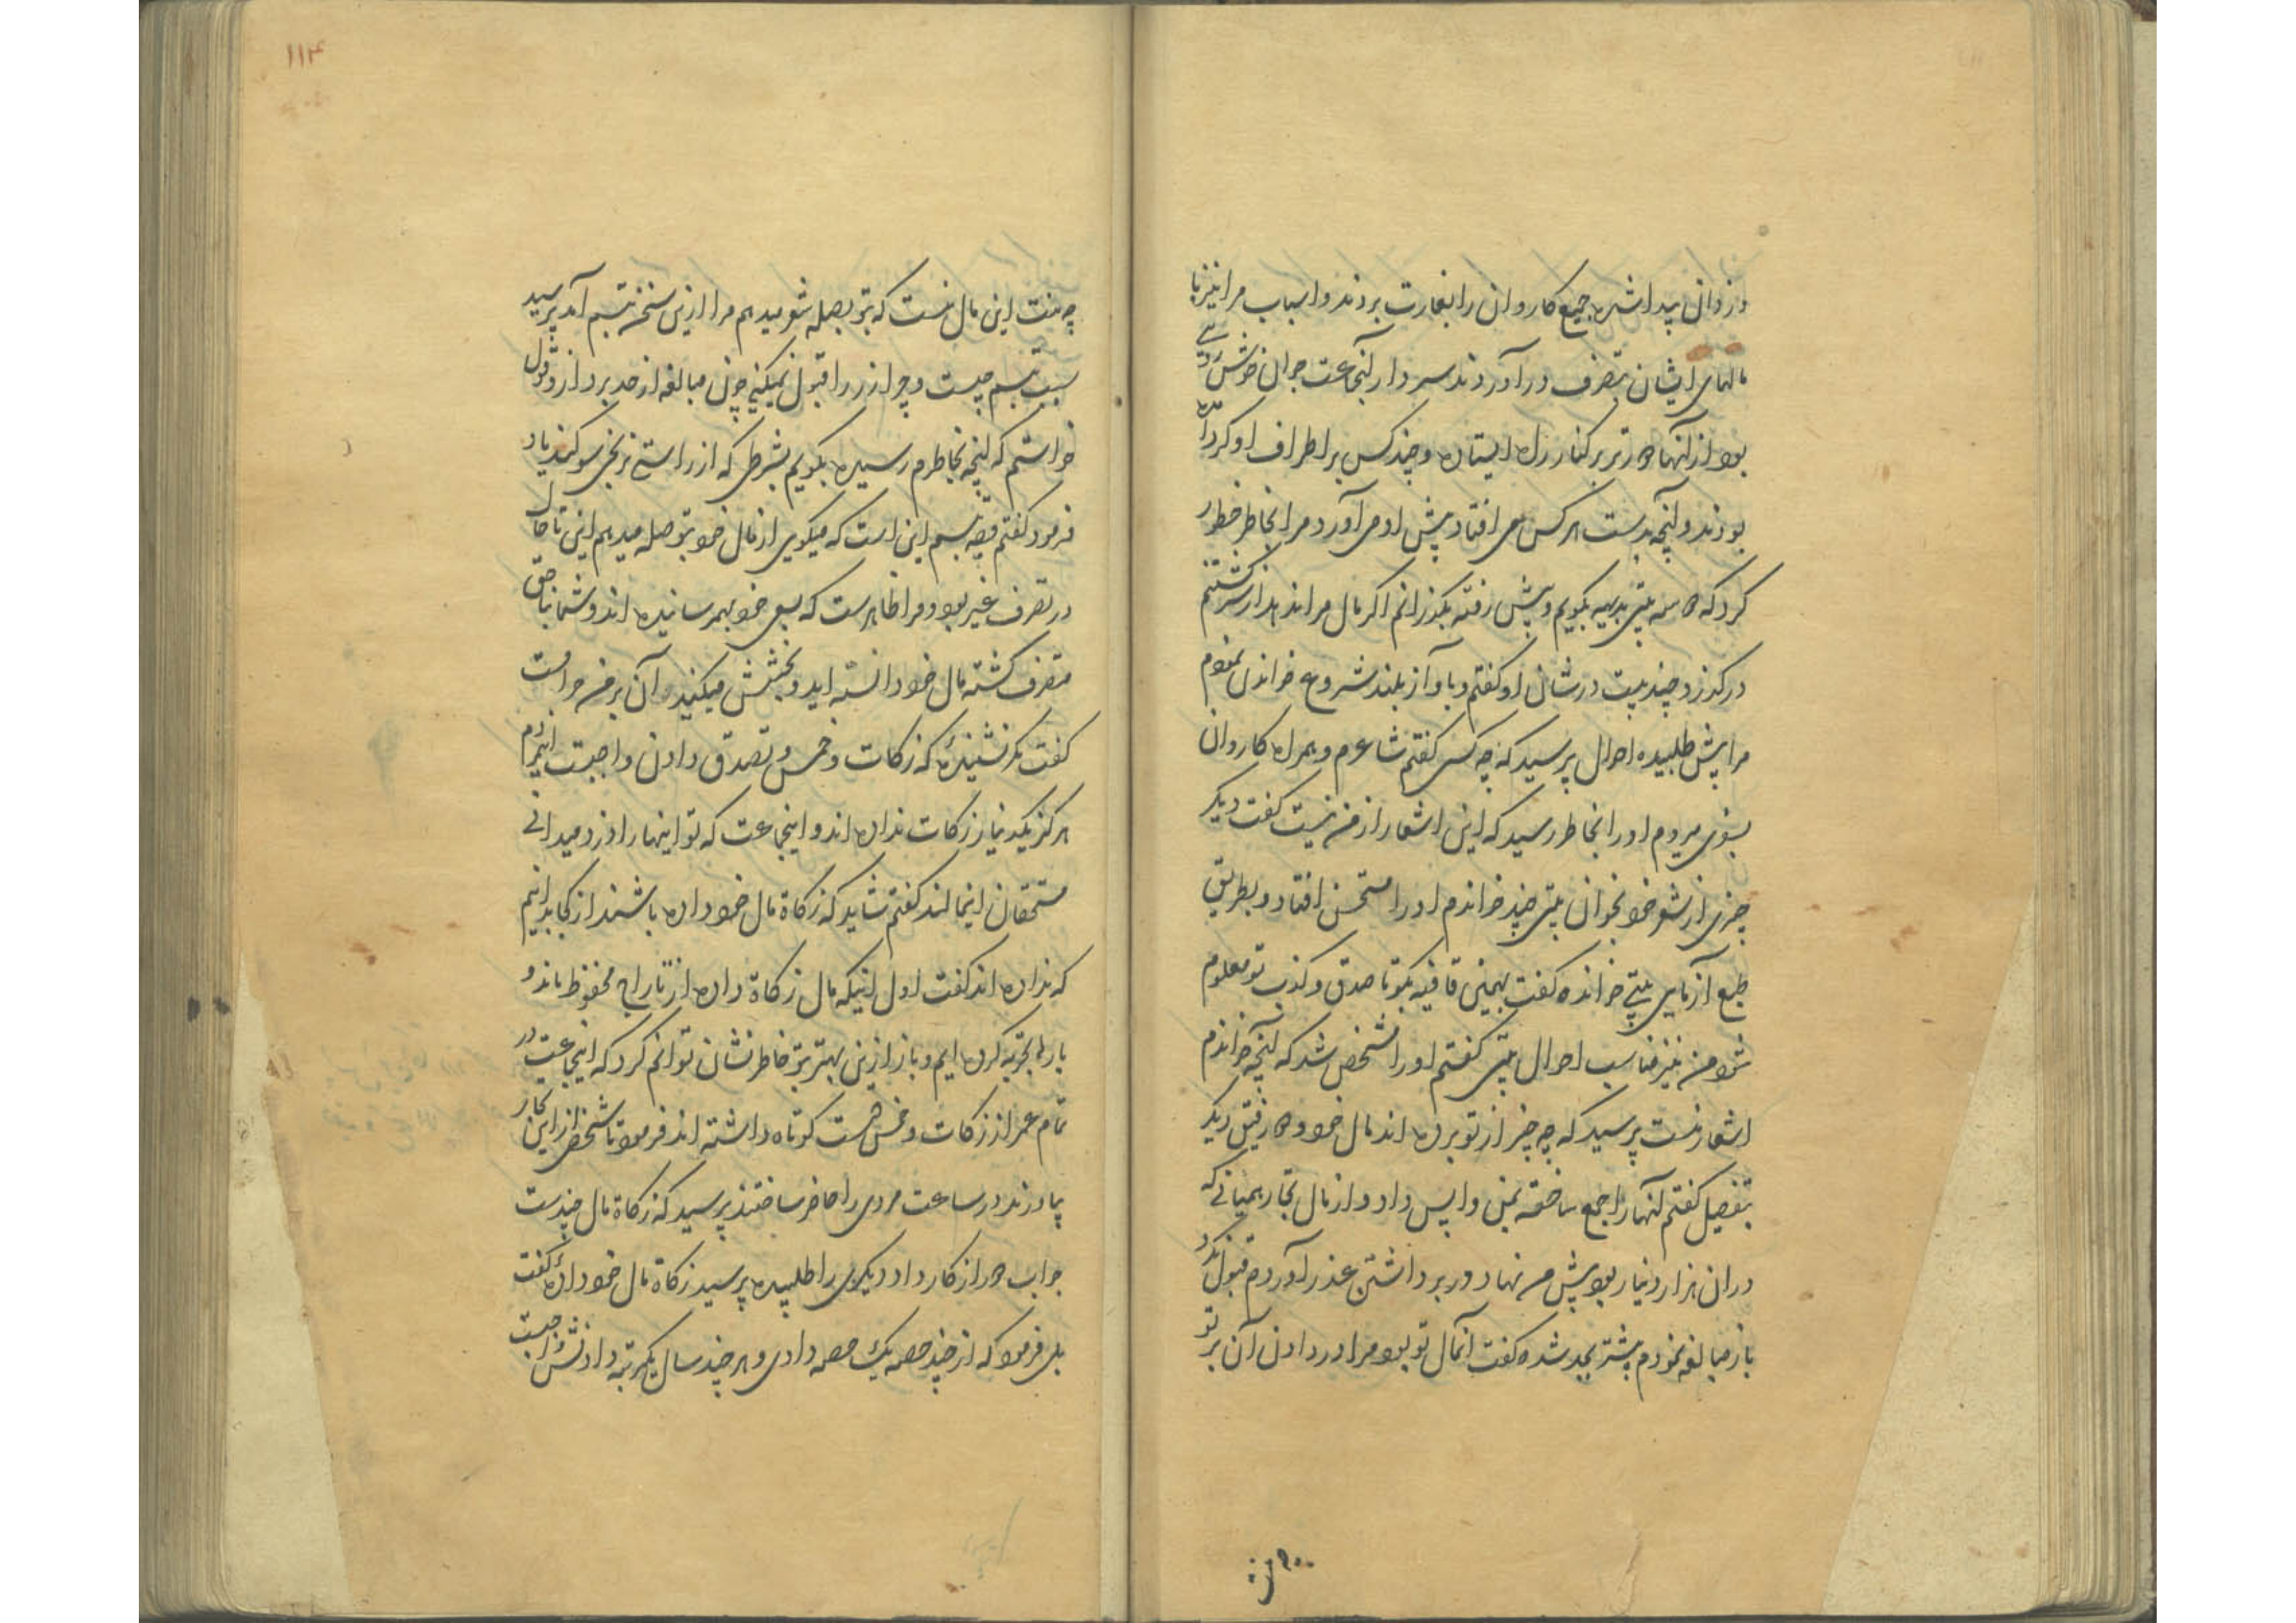 دزدان پیدا شده جمیع کاروان را بغارت بردند و اسباب مرا نیز با
مالهای ایشان بتصرف درآوردند سردار آنجماعت جوان خوش روئی
بود از آنها دورتر بر کنار راه ایستاده و چند کس بر اطراف او گرد آمده
بودند و آنچه بدست هر کس می افتاد پیش او می آورد مرا بخاطر خطور
کرد که دو سه بیتی بدیهه بگویم و پیش رفته بگذرانم اگر مال مرا ندهد از سر کشتنم
درگذرد چند بیت در شان او گفتم و بآواز بلند شروع خواندن نمودم
مرا پیش طلبیده احوال پرسید که چه کسی گفتم شاعرم و همراه کاروان
بسوی میروم او را بخاطر رسید که این اشعار از من نیست گفت دیگر
چیزی از شعر خود بخوان بیتی چند خواندم او را مستحسن افتاد و بطریق
طبع آزمایی بیتی خوانده گفت بهمین قافیه بگو تا صدق و کذب تو معلوم
شود من نیز مناسب احوال بیتی گفتم او را مشخص شد که آنچه خواندم
اشعار منست پرسید که چه چیز از تو برده اند مال خود و دو رفیق دیگر
بتفصیل گفتم آنها را جمع ساخته بمن واپس داد و از مال تجار همیانی که
در ان هزار دینار بود پیش من نهاد در برداشتن عذر آوردم قبول نکرد
باز مبالغه نمودم بیشتر بجد شده گفت آنمال تو بود مرا در دادن آن بر تو
۱۱۴
چه منت این مال منست که بتو بصله شعر میدهم مرا ازین سخن تبسم آمد پرسید
سبب تبسم چیست و چرا زر را قبول نمیکنی چون مبالغه از حد برد از وقول
خواستم که آنچه بخاطرم رسیده بگویم بشرطی که از راستی نرنجی سوگند یاد
فرمود گفتم قصه تبسم این است که میگویی از مال خود بتو صله میدهم این تا حال
در تصرف غیر بود و مرا ظاهرست که بسعی خود بهمرسانیده اند و شما بناحق
متصرف گشته مال خود دانسته اید و بخشش میکنید و آن بر من حرامست
گفت مگر نشنیدهٔ که زکات و خمس و تصدق دادن واجبست اینمردم
هرگز یکدینار زکات نداده اند و اینجماعت که تو اینها را دزد میدانی
مستحقان اینمالند گفتم شاید که زکاة مال خود داده باشند از کجا بدانیم
که نداده اند گفت اول اینکه مال زکاة داده از تاراج محفوظ ماند و
بارها تجربه کرده ایم و باز ازین بهتر بتو خاطر نشان توانم کرد که اینجماعت در
تمام عمر از زکات و خمس دست کوتاه داشته اند فرمود تا شخصی از این تجار
بیاورند در ساعت مردی را حاضر ساختند پرسید که زکاة مال چندست
جواب دور از کار داد دیگری را طلبیده پرسید زکاة مال خود دادهٔ گفت
بلی فرمود که از چند حصه یک حصه دادی و هر چند سال یکمرتبه دادنش واجبست